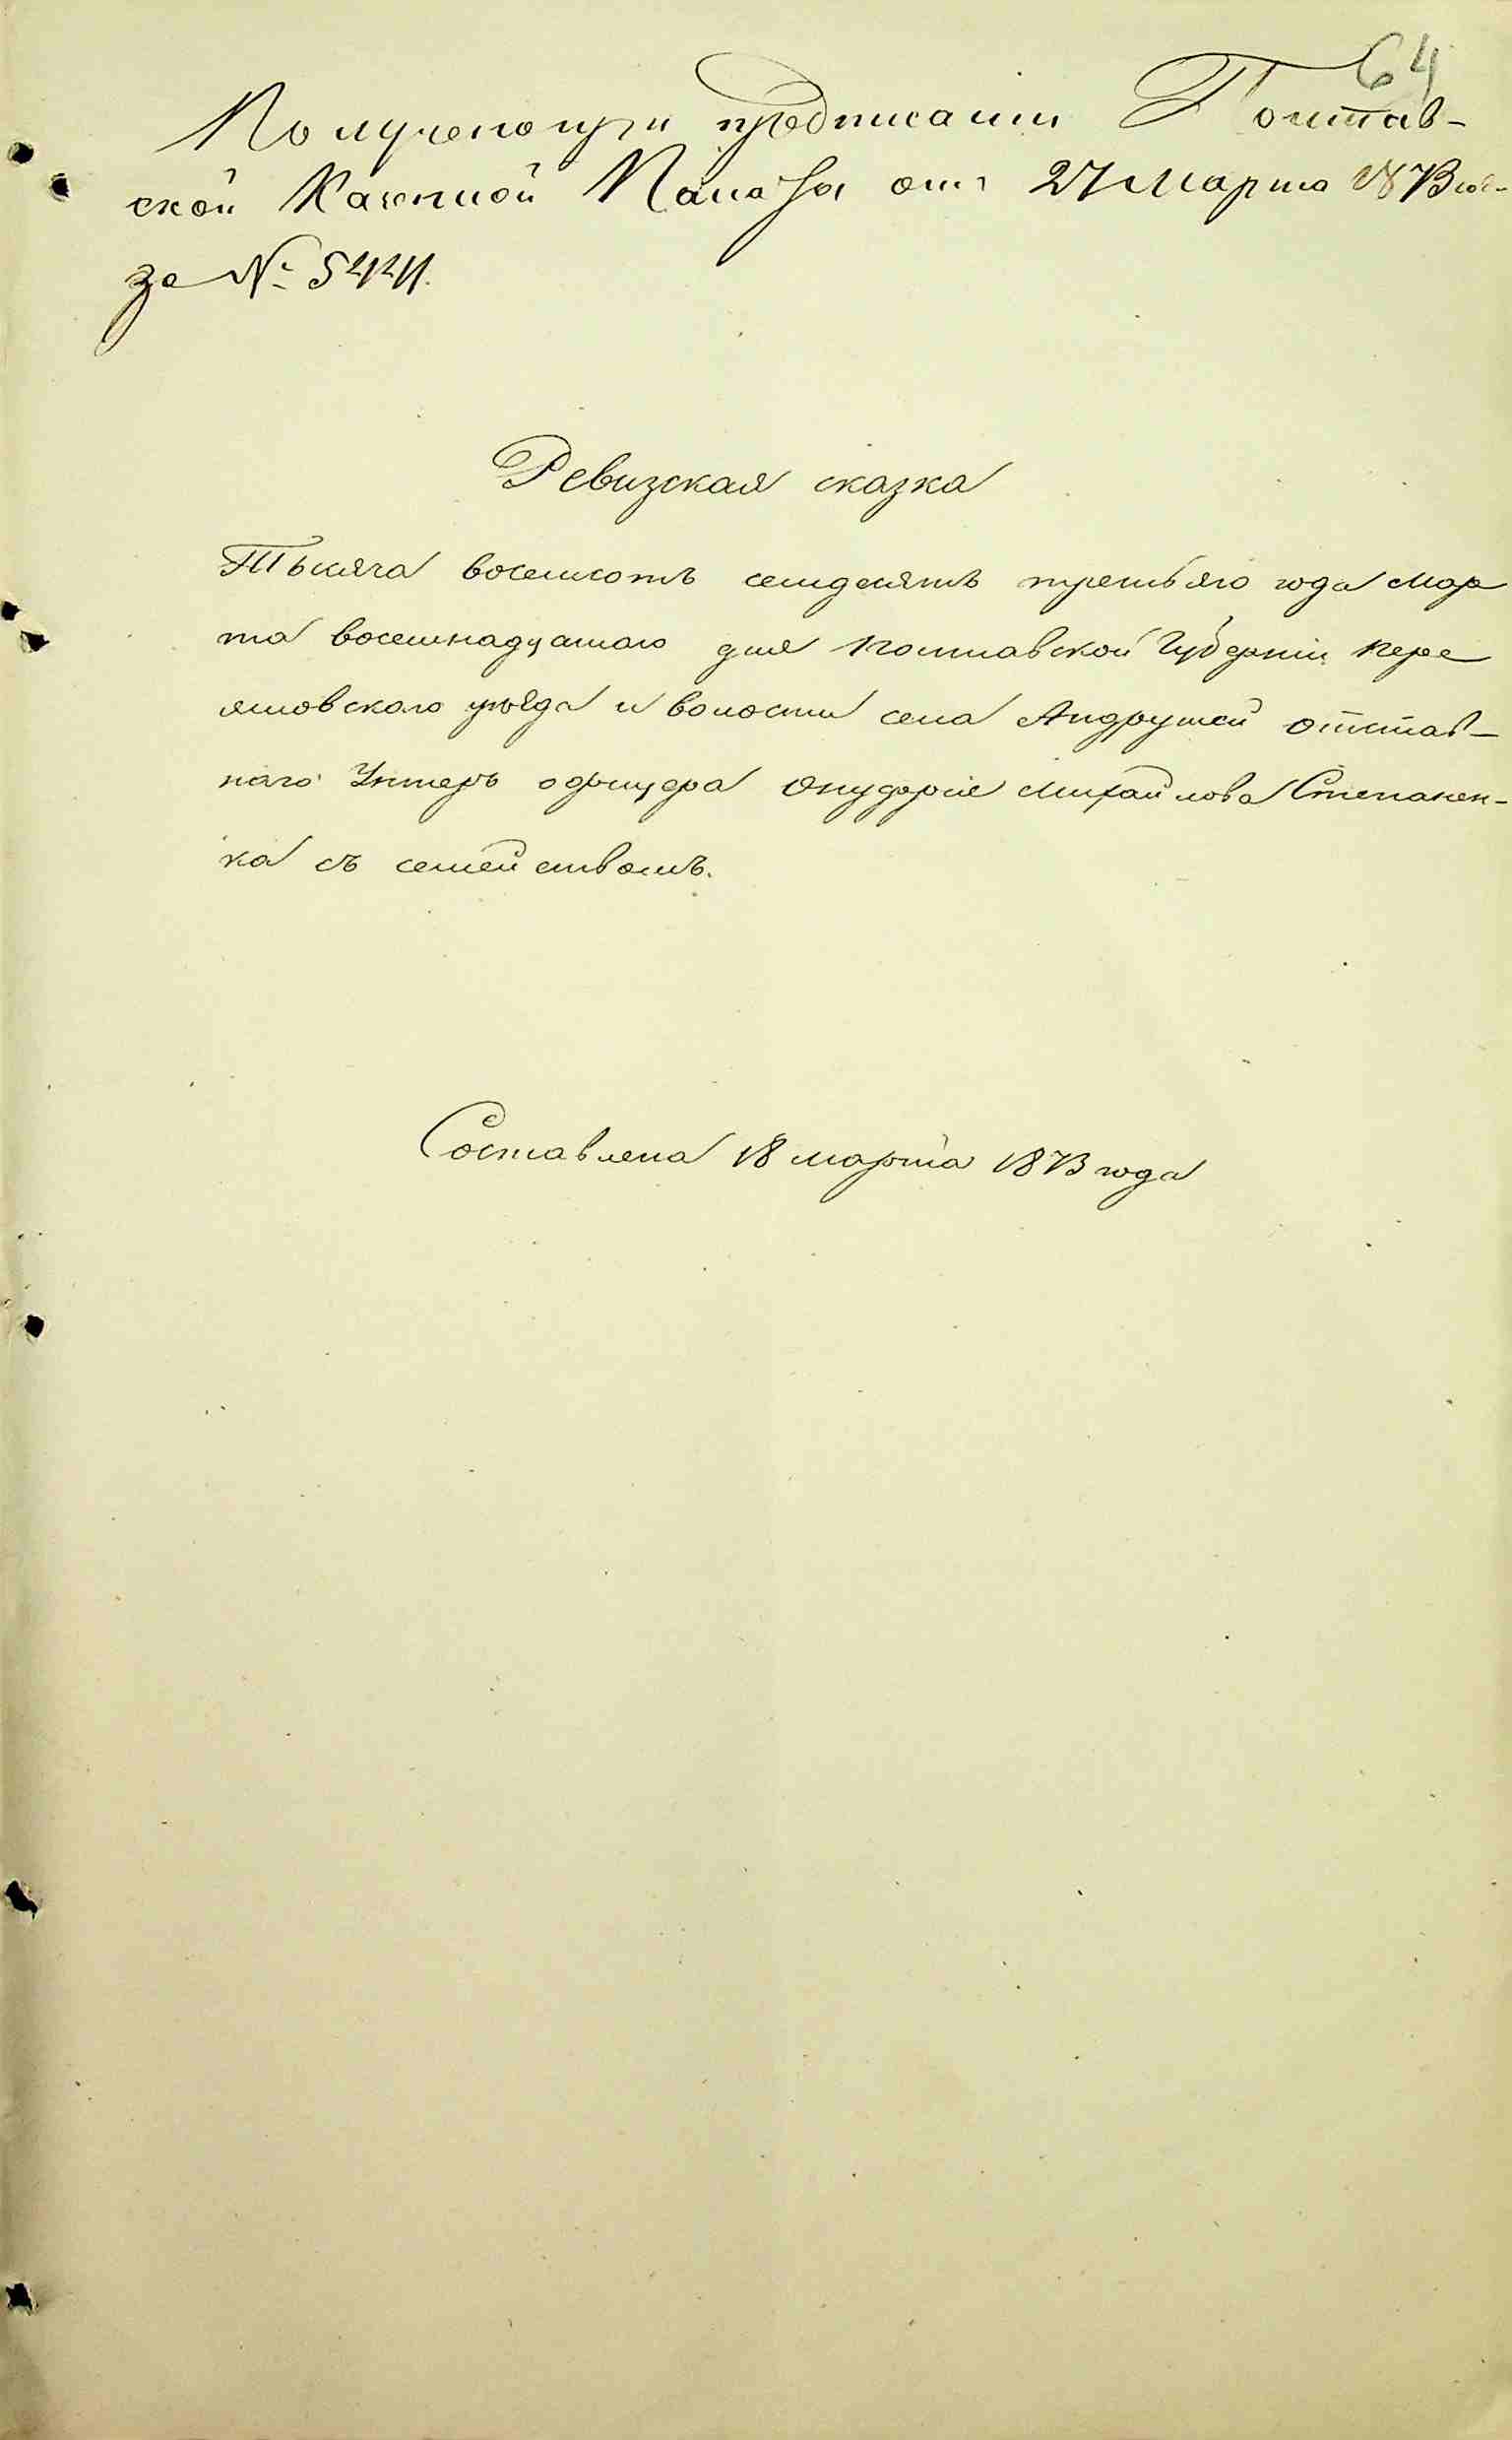 64
Получена при предписании Полтав-
ской Казенной Палаты от 27 Марта 1873 го-
за № 5424.
Ревизская сказка
Тысяча восемсотъ семдесятъ третьяго года Мар
та восемнадцатаго дня Полтавской Губерніи Пере
яловского уѣзда и волости села Андрушей отстав-
наго Унтеръ офицера Онуфрія Михайлова Степанен-
ка съ семействомъ.
Составлена 18 марта 1873 года